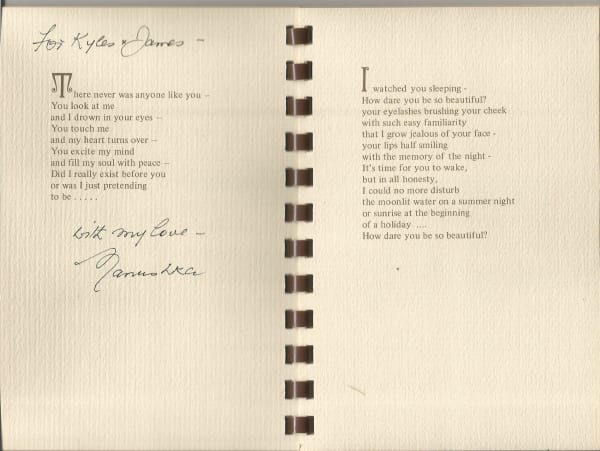 For Kyles & James -
There never was anyone like you --
You look at me
and I drown in your eyes --
You touch me
and my heart turns over --
You excite my mind
and fill my soul with peace --
Did I really exist before you
or was I just pretending
to be .....
with my love -
I watched you sleeping -
How dare you be so beautiful?
your eyelashes brushing your cheek
with such easy familiarity
that I grow jealous of your face -
your lips half smiling
with the memory of the night -
It's time for you to wake,
but in all honesty,
I could no more disturb
the moonlit water on a summer night
or sunrise at the beginning
of a holiday ....
How dare you be so beautiful?